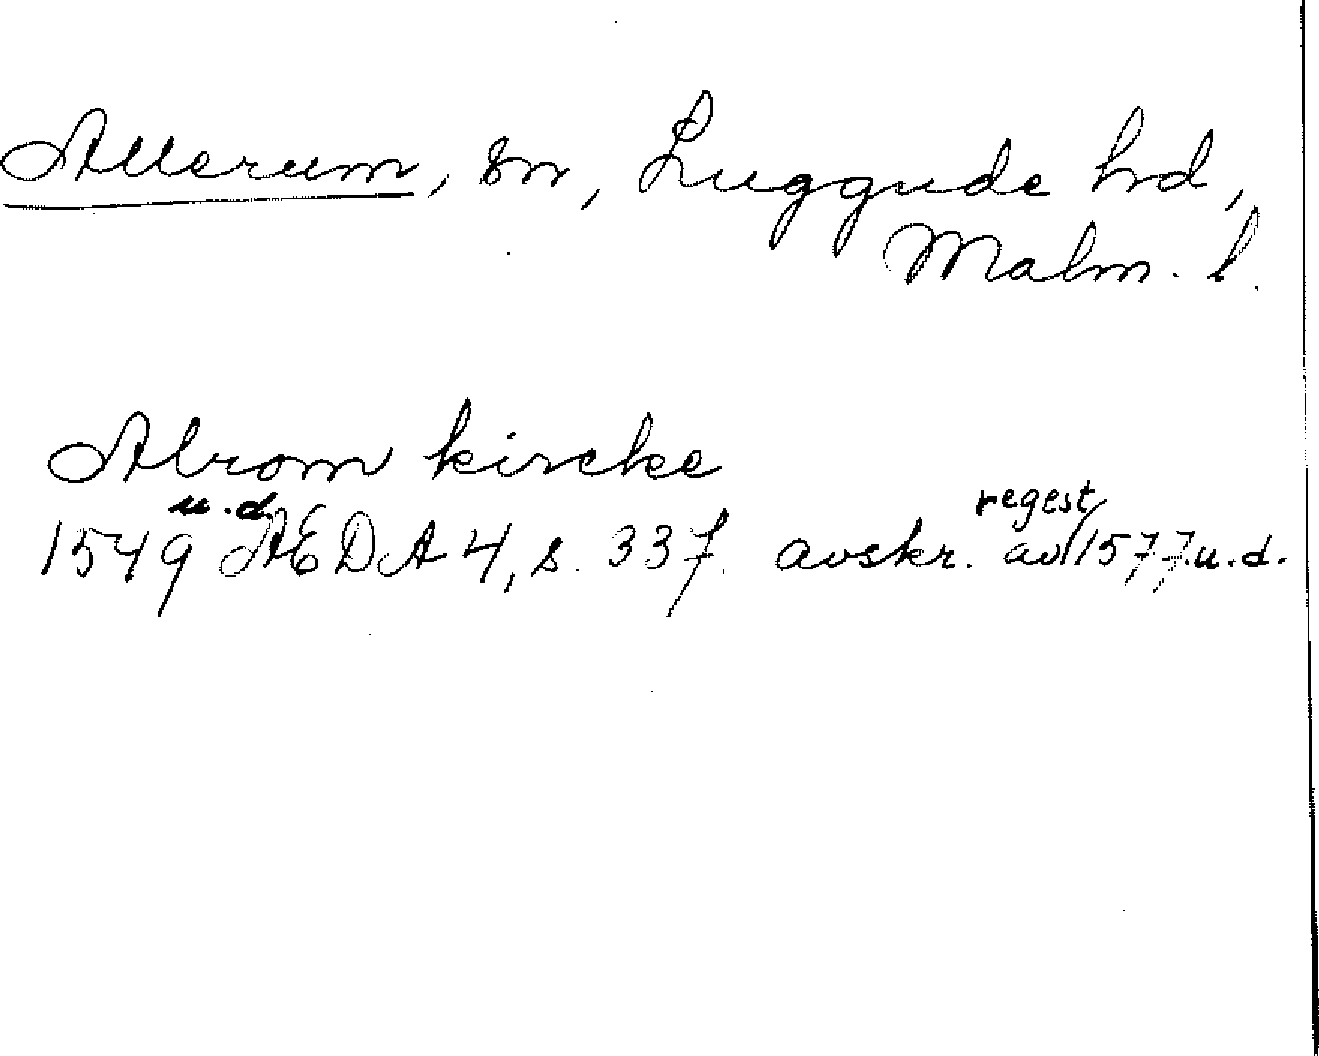 Allerum, sn, Luggude hrd,
Malm. l.
Alrom kircke
1549 u.d. ÄEDA 4, s. 337. avskr. av regest 1577 u.d.